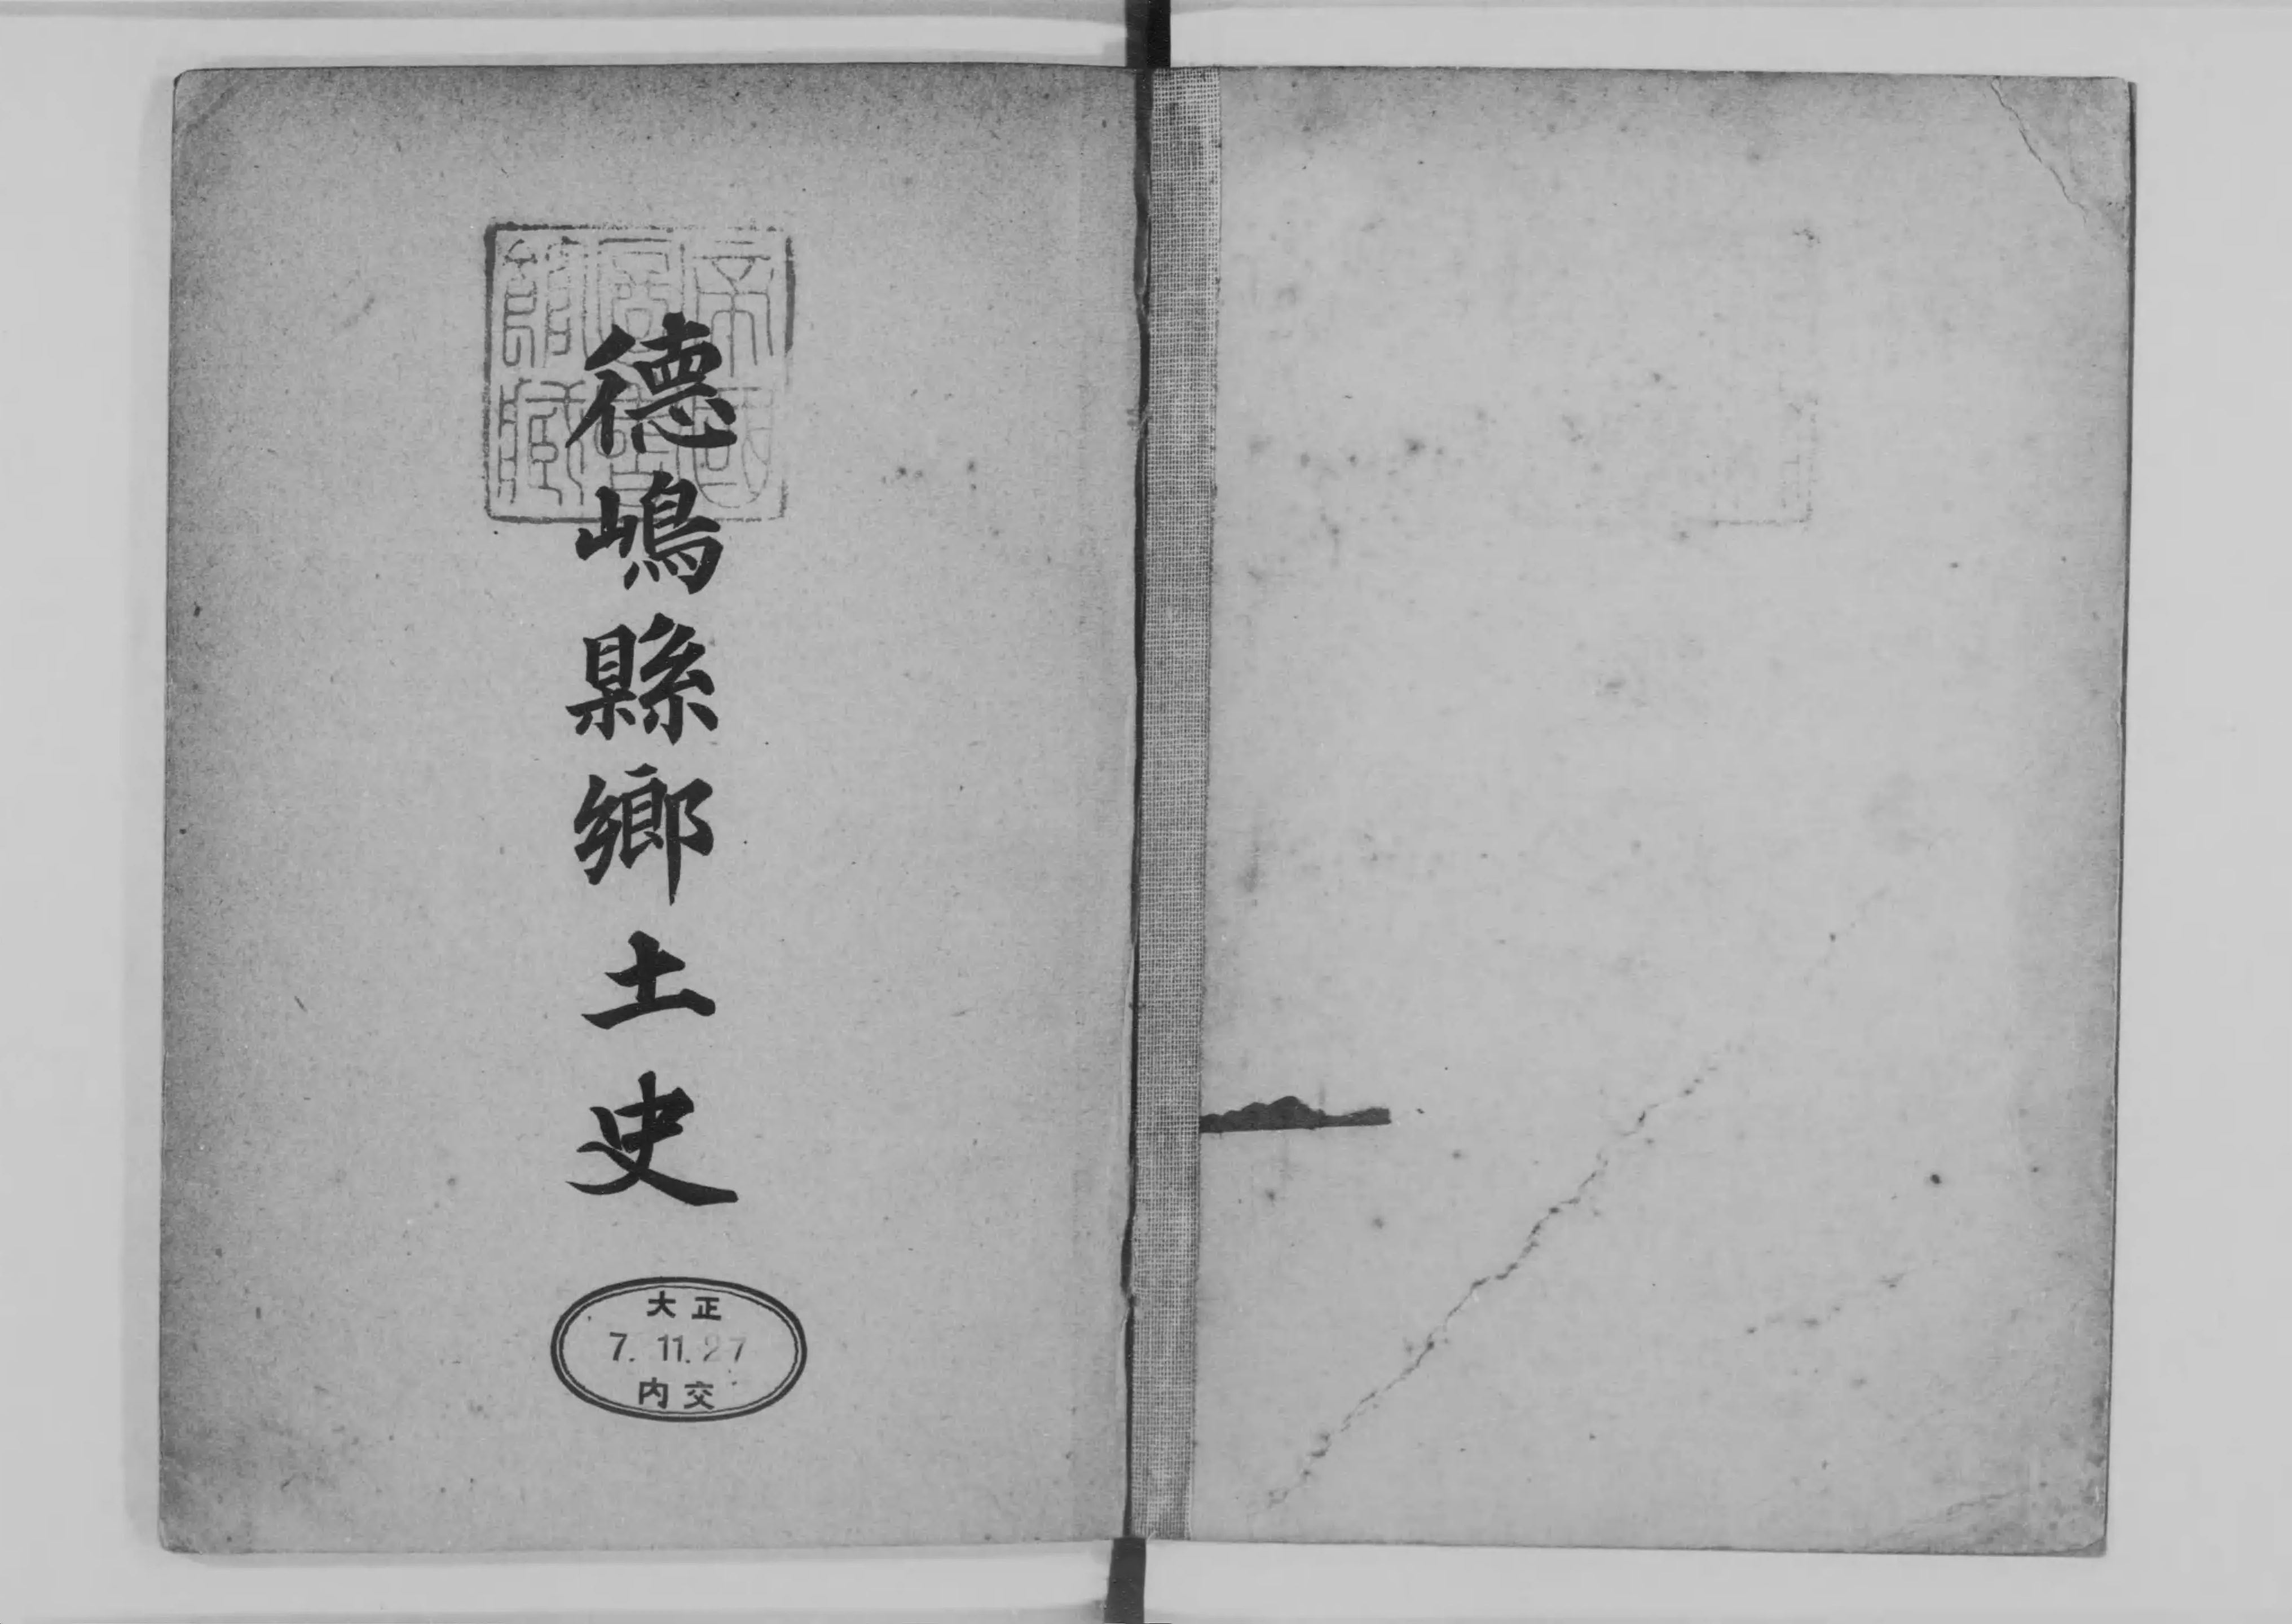 德嶋縣鄉土史
帝國
圖書
館藏
大正
7.11.27
内交